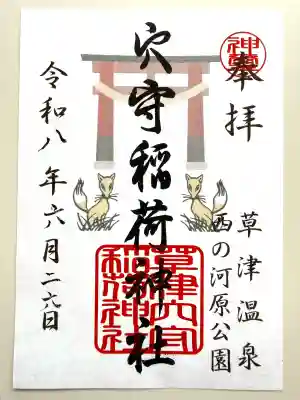 奉拝
草津温泉
西の河原公園
穴守稲荷神社
草津穴守
稲荷神社
令和八年六月二六日